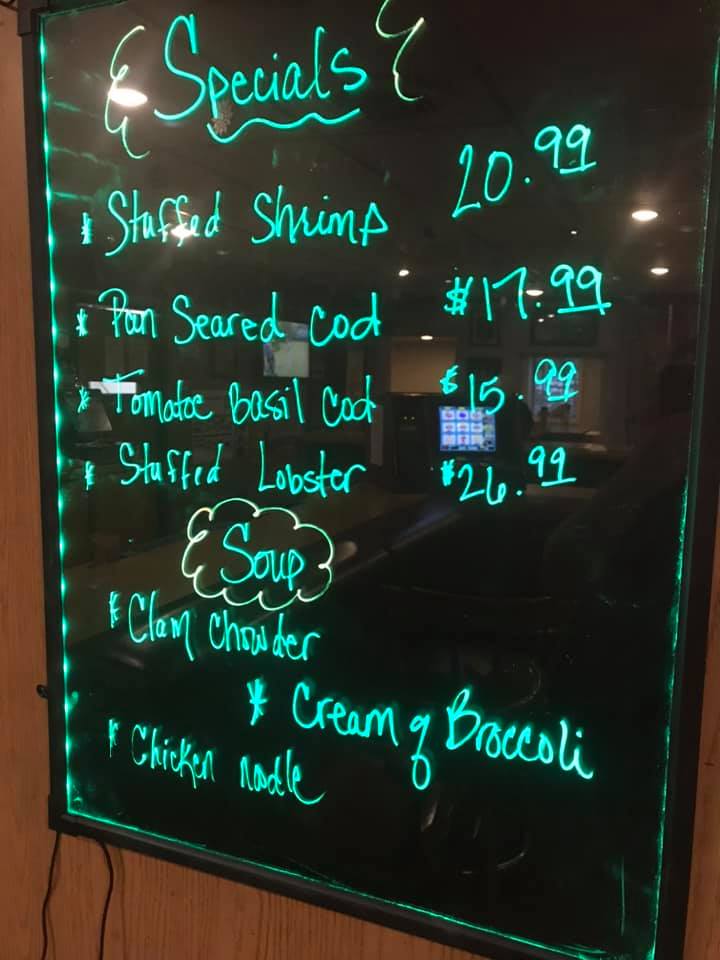 Specials
* Stuffed Shrimp 20.99
* Pan Seared Cod $17.99
* Tomatoe Basil Cod $15.99
* Stuffed Lobster $26.99
Soup
* Clam Chowder
* Cream of Broccoli
* Chicken noodle